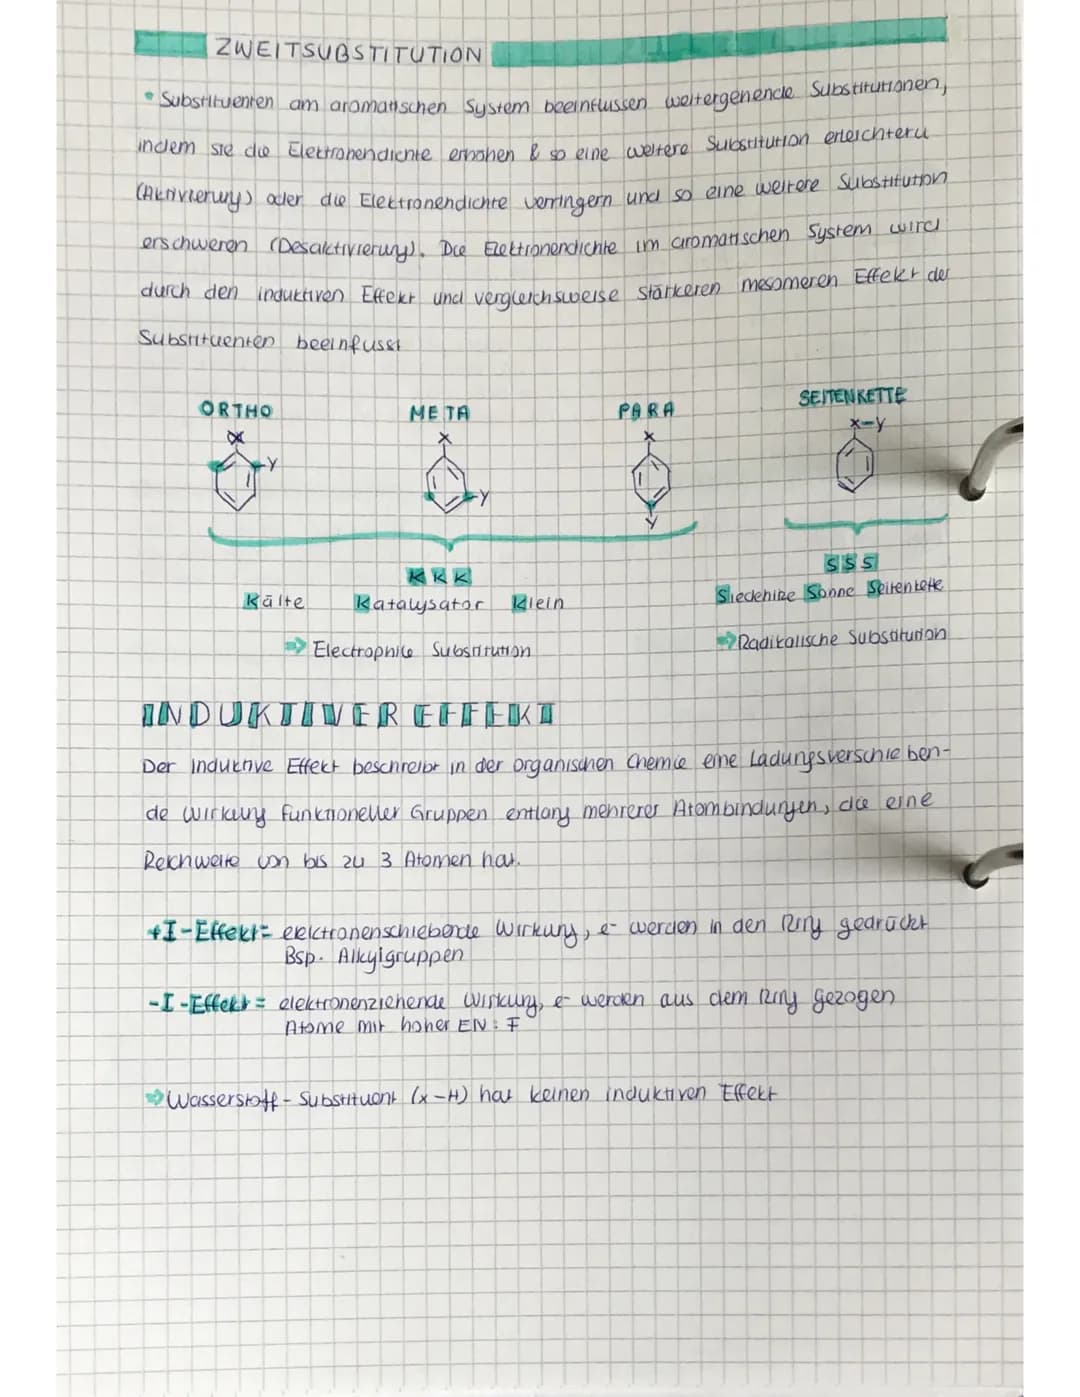 ZWEITSUBSTITUTION
• Substituenten am aromatischen System beeinflussen weitergehende Substitutionen,
indem sie die Elektronendichte erhöhen & so eine weitere Substitution erleichtern
(Aktivierung) oder die Elektronendichte verringern und so eine weitere Substitution
erschweren (Desaktivierung). Die Elektronendichte im aromatischen System wird
durch den induktiven Effekt und vergleichsweise stärkeren mesomeren Effekt der
Substituenten beeinflusst
ORTHO META PARA SEITENKETTE
X X X X-Y
Y Y Y
KKK SSS
Kälte Katalysator Klein Siedehitze Sonne Seitenkette
⇒ Electrophile Substitution ⇒ Radikalische Substitution
INDUKTIVER EFFEKT
Der induktive Effekt beschreibt in der organischen Chemie eine Ladungsverschieben-
de Wirkung funktioneller Gruppen entlang mehrerer Atombindungen, die eine
Reichweite von bis zu 3 Atomen hat.
+I-Effekt= elektronenschiebende Wirkung, e- werden in den Ring gedrückt
Bsp. Alkylgruppen
-I-Effekt= elektronenziehende Wirkung, e- werden aus dem Ring gezogen
Atome mit hoher EN: F
⇒ Wasserstoff-Substituent (X-H) hat keinen induktiven Effekt